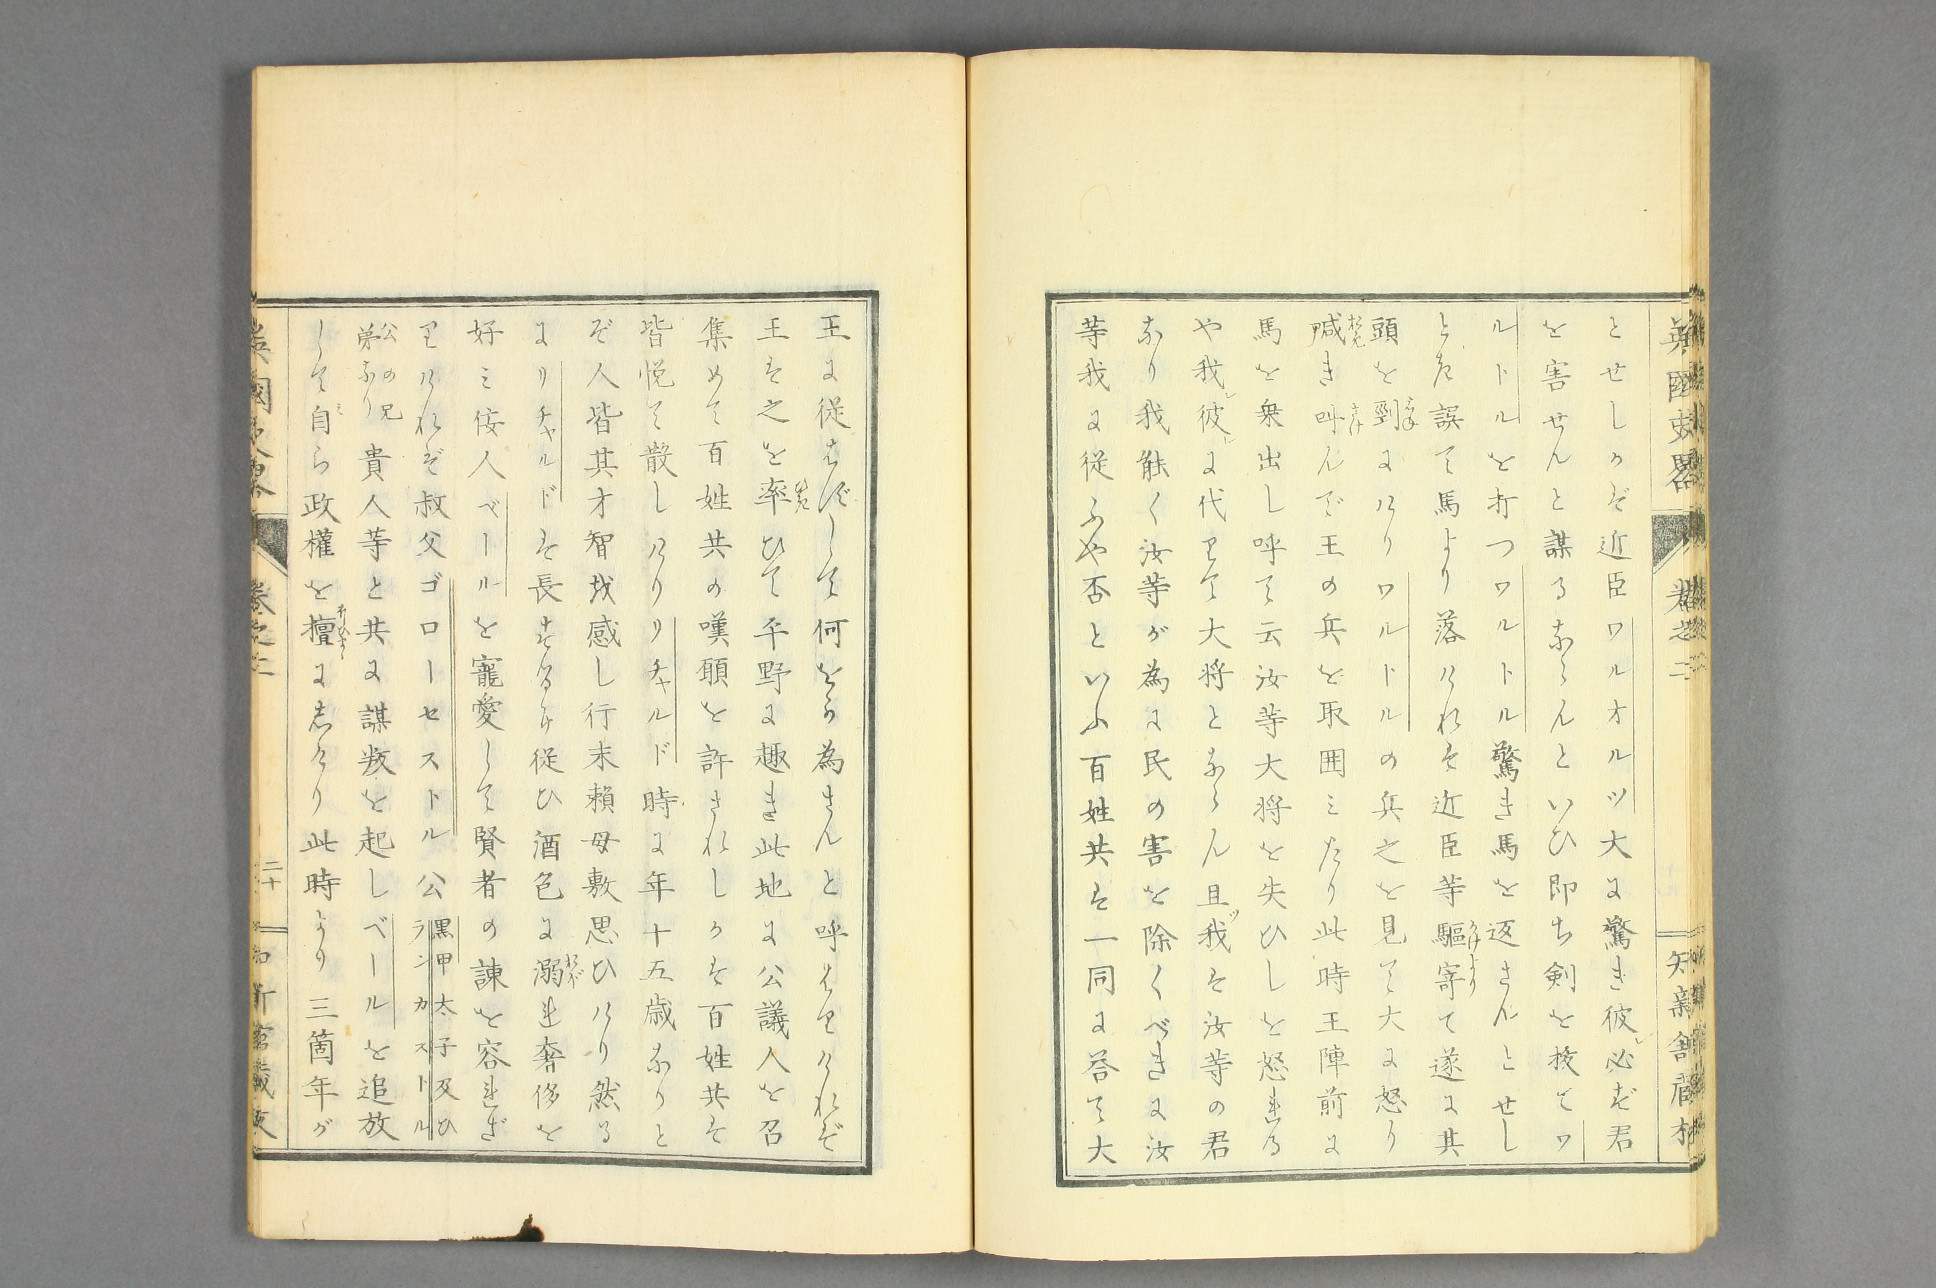 英国史略 巻之二 知新舘蔵梓
とせしかば近臣ワルオルツ大に驚き彼必ず君
を害せんと謀るならんといひ即ち剣を抜てワ
ルトルを打つワルトル驚き馬を返さんとせし
とき誤て馬より落ければ近臣等驅寄て遂に其
頭を剄にけりワルトルの兵之を見て大に怒り
喊き叫んで王の兵を取囲みたり此時王陣前に
馬を乗出し呼て云汝等大将を失ひしを怒るる
や我彼に代りて大将とならん且我は汝等の君
なり我能く汝等が為に民の害を除くべきに汝
等我に従ふや否といふ百姓共は一同に答て大
王に従はずして何をか為さんと呼はりければ
王は之を率ひて平野に趣き此地に公議人を召
集めて百姓共の嘆願を許されしかば百姓共は
皆悦て散じけりリチャルド時に年十五歳なりと
ぞ人皆其才智に感じ行末頼母敷思ひけり然る
にリチャルドは長ずるに従ひ酒色に溺れ奢侈を
好み佞人ベールを寵愛して賢者の諌を容れざ
りければ叔父ゴローセストル公 黒甲太子及ひランカストル
公の兄弟なり 貴人等と共に謀叛を起しベールを追放
して自ら政權を擅にしけり此時より三箇年が
英國史略 巻之二 二十 知新舘蔵版